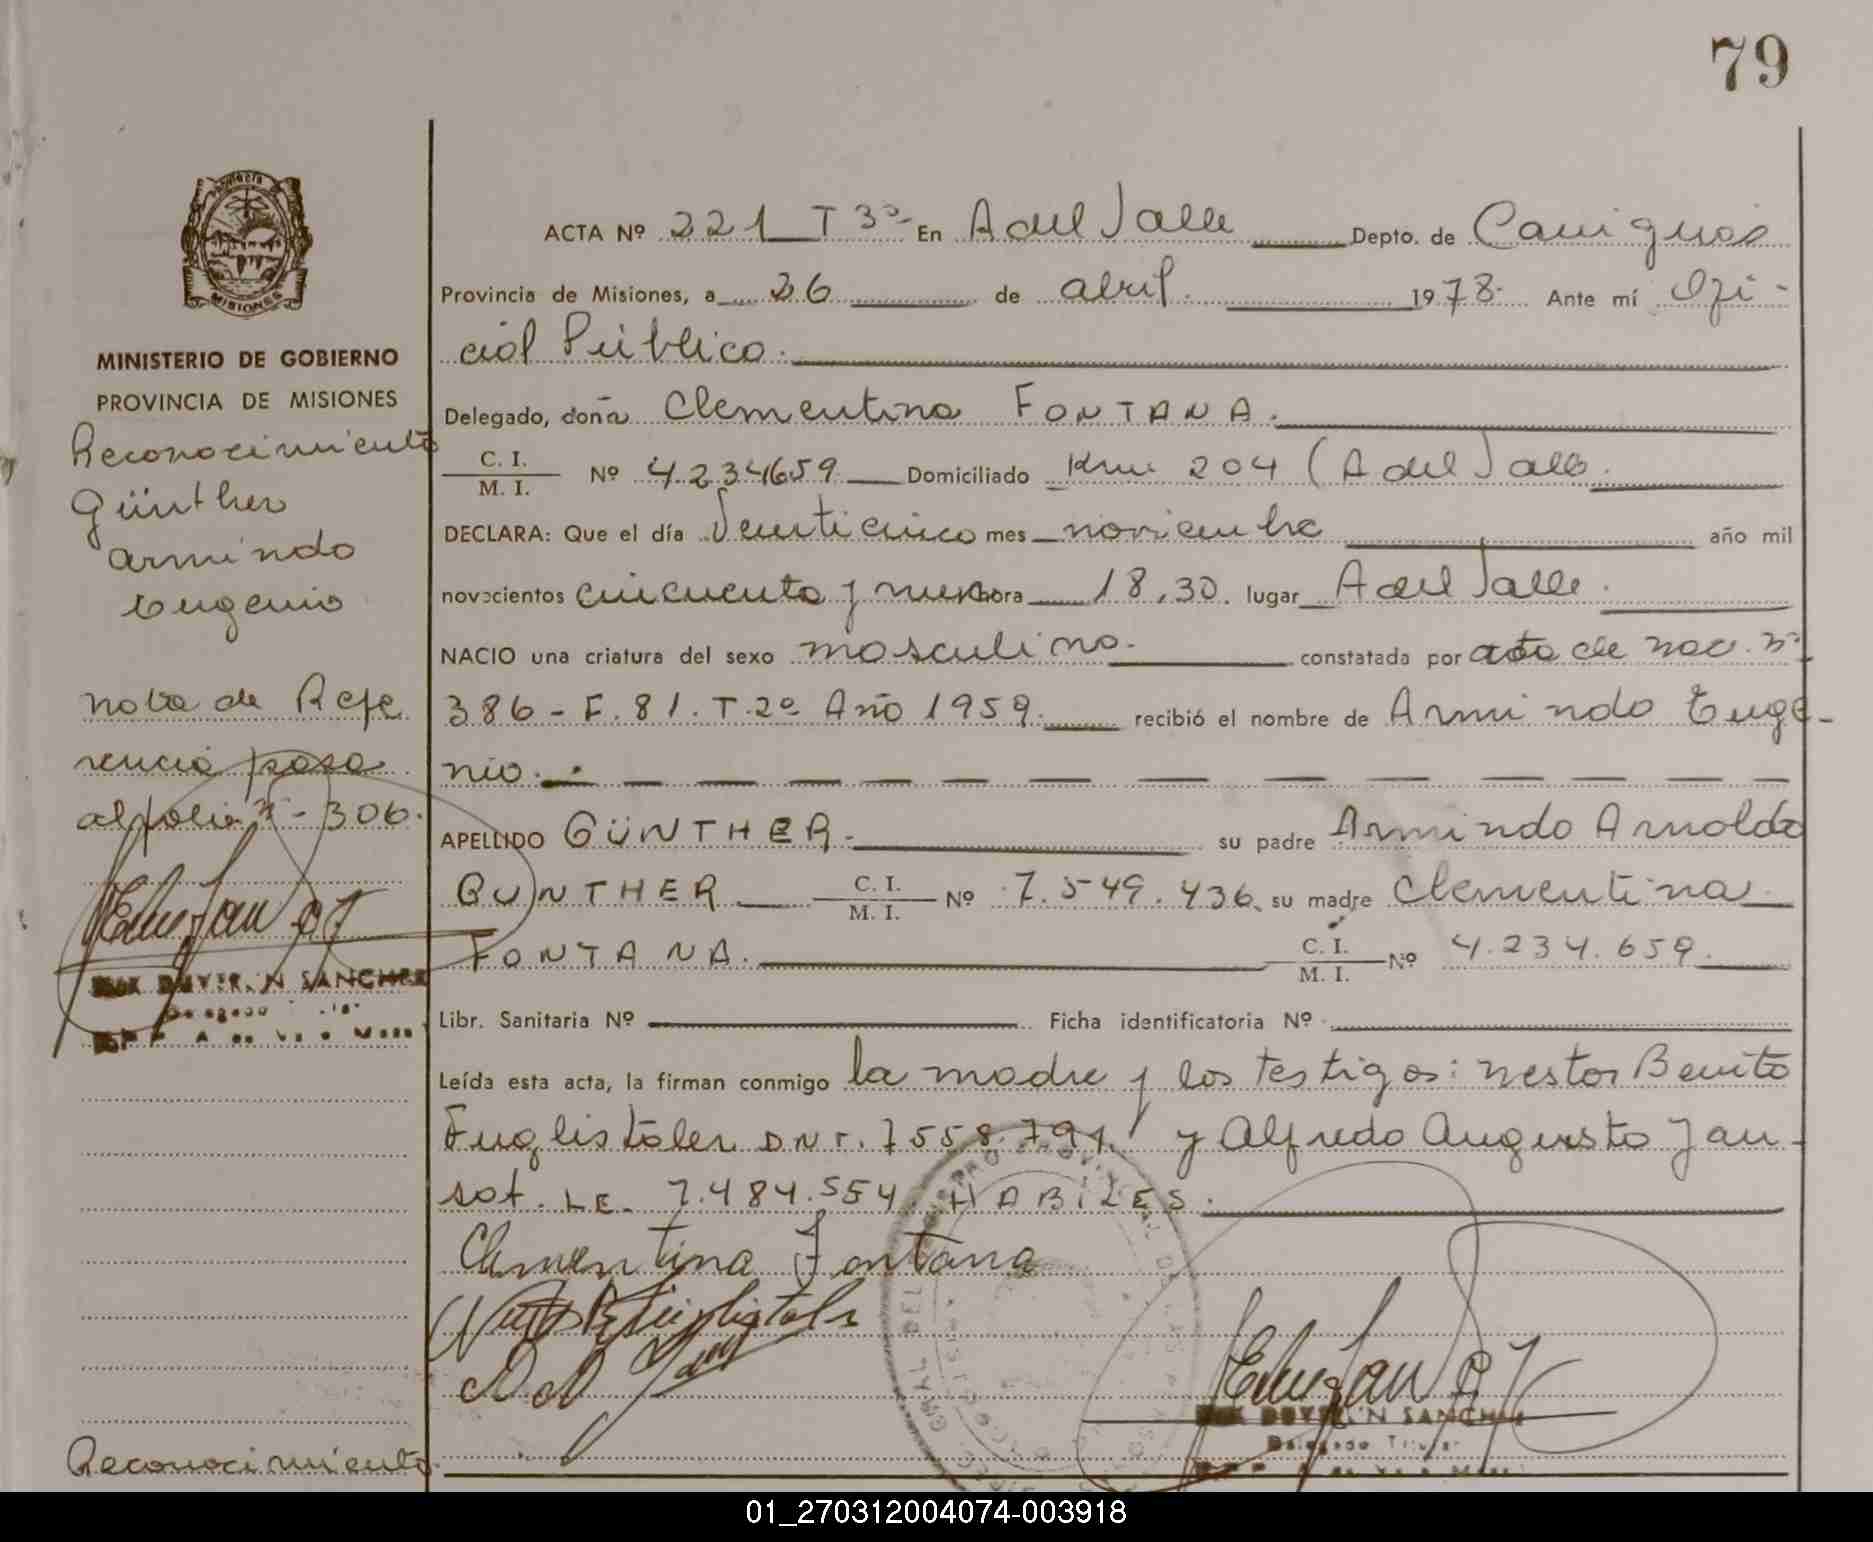 79
MINISTERIO DE GOBIERNO
PROVINCIA DE MISIONES
Reconocimiento
Günther
Armindo
Eugenio
nota de Refe
rencia pasa
al folio nº - 306.
SANCHEZ
ACTA Nº 221 T 3º En A del Valle Depto. de Cainguás
Provincia de Misiones, a 26 de abril 1978. Ante mí Ofi-
cial Público.
Delegado, doña Clementina FONTANA.
C. I.
M. I. Nº 4.234659 Domiciliado Km. 204 (A del Valle.
DECLARA: Que el día Veinticinco mes noviembre año mil
novecientos cincuenta y nueve hora 18,30. lugar A del Valle.
NACIO una criatura del sexo masculino. constatada por acta de nac. nº
386 - F. 81. T. 2º Año 1959. recibió el nombre de Armindo Euge-
nio.
APELLIDO GÜNTHER. su padre Armindo Arnoldo
GUNTHER C. I.
M. I. Nº 7.549.436 su madre Clementina
FONTANA. C. I.
M. I. Nº 4.234.659.
Libr. Sanitaria Nº Ficha identificatoria Nº
Leída esta acta, la firman conmigo la madre y los testigos: Nestor Benito
Fuglistaler D.N.I. 7558.791 y Alfredo Augusto Jan-
sot. L.E. 7.484.554 HABILES.
Clementina Fontana
SANCHEZ
Delegado Titular
Reconocimiento
01_270312004074-003918